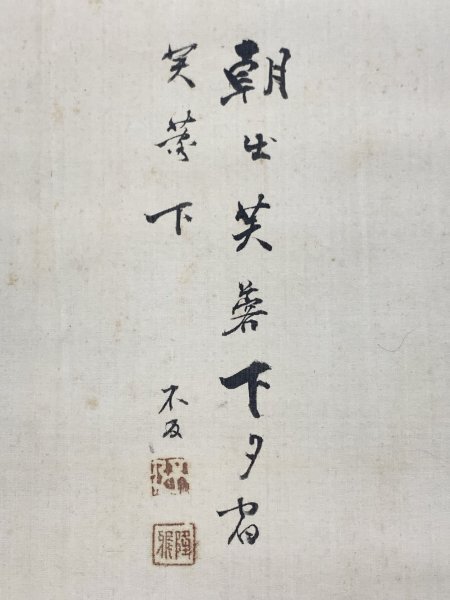 朝出芙蓉下夕宿
芙蓉下
不及